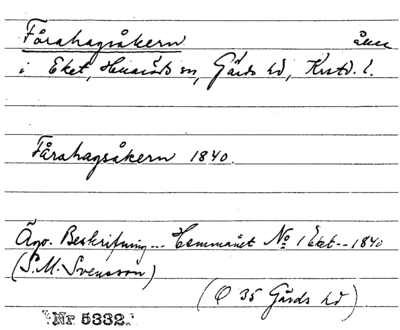 Fårahagsåkern åker
i Eket, Huaröds sn, Gärds hd, Krstd. l.
Fårahagsåkern 1840.
Ägo. Beskrifning... Hemmanet No 1 Eket -- 1840
(S. M. Svensson)
(Q 35 Gärds hd)
Nr 5332.